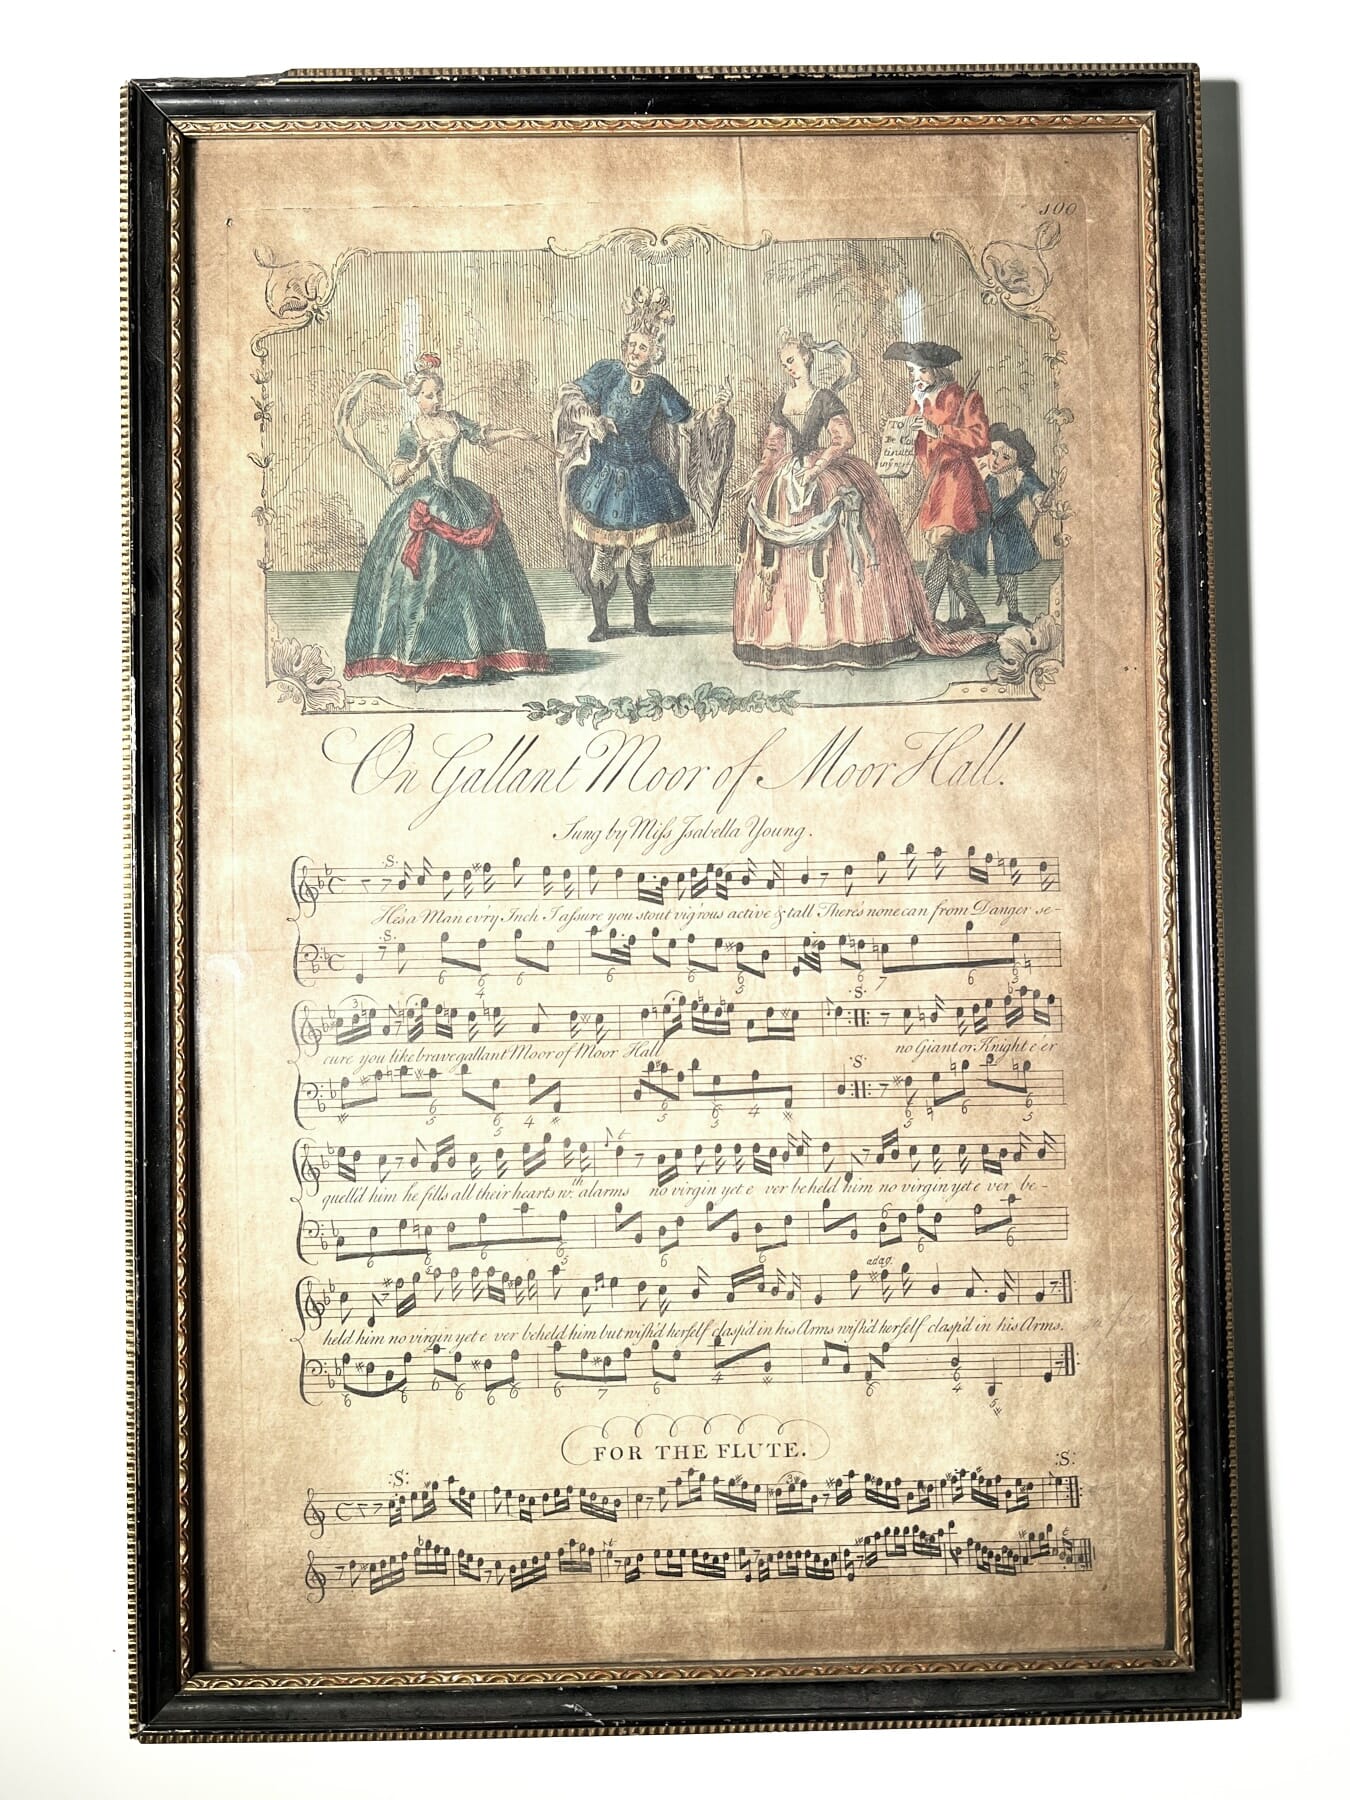 100
TO
Be Co
tinued
On Gallant Moor of Moor Hall.
Sung by Miſs Isabella Young.
He's a Man ev'ry Inch I aſsure you stout vig'rous active & tall There's none can from Danger se-
cure you like brave gallant Moor of Moor Hall no Giant or Knight e'er
quell'd him he fills all their hearts wth. alarms no virgin yet e ver beheld him no virgin yet e ver be-
adag.
held him no virgin yet e ver beheld him but wish'd herself clasp'd in his Arms wish'd herself clasp'd in his Arms.
FOR THE FLUTE.